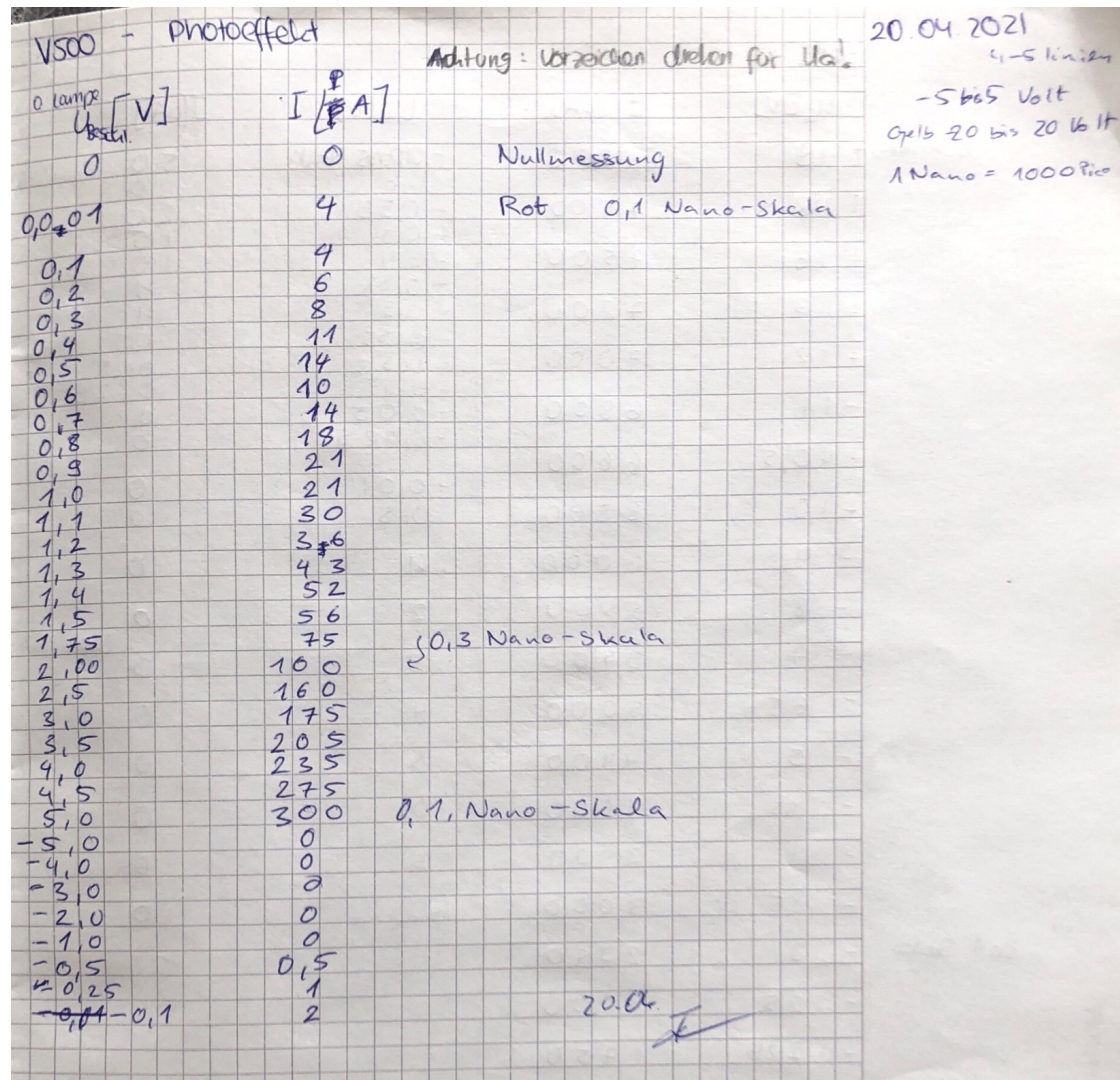 V500 - Photoeffekt
20.04.2021
Achtung: Vorzeichen drehen für Ua!
4-5 linien
-5 bis 5 Volt
Gelb -20 bis 20 Volt
1 Nano = 1000 Pico
0 Lampe
U Beschl. [V] I [pA]
0 0 Nullmessung
0,001 4 Rot 0,1 Nano-Skala
0,1 4
0,2 6
0,3 8
0,4 11
0,5 14
0,6 10
0,7 14
0,8 18
0,9 21
1,0 21
1,1 30
1,2 36
1,3 43
1,4 52
1,5 56
1,75 75 0,3 Nano-Skala
2,00 100
2,5 160
3,0 175
3,5 205
4,0 235
4,5 275
5,0 300 0,1, Nano-Skala
-5,0 0
-4,0 0
-3,0 0
-2,0 0
-1,0 0
-0,5 0,5
-0,25 1
-0,1 2
20.04.